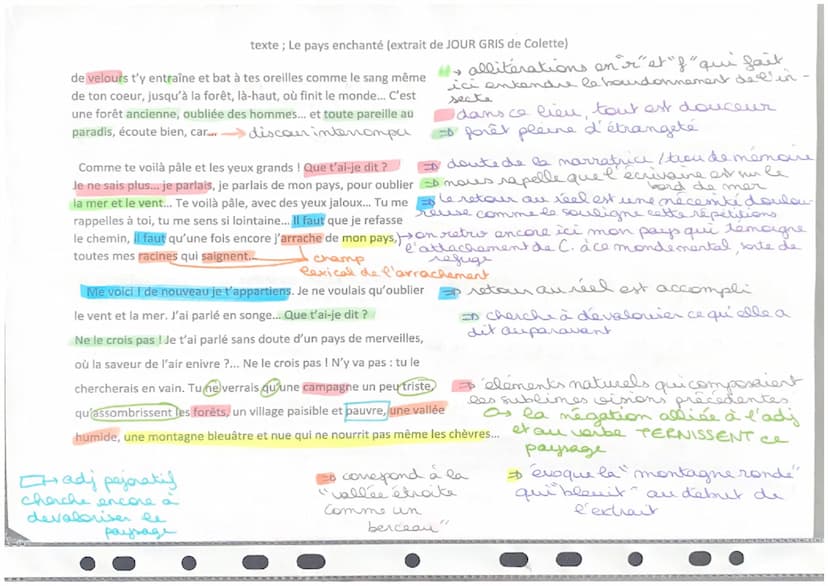 texte ; Le pays enchanté (extrait de JOUR GRIS de Colette)
de velours t'y entraîne et bat à tes oreilles comme le sang même
de ton coeur, jusqu'à la forêt, là-haut, où finit le monde... C'est
une forêt ancienne, oubliée des hommes... et toute pareille au
paradis, écoute bien, car... → discours interrompu
→ allitérations en "r" et "f" qui fait
ici entendre le bourdonnement de l'in-
secte
dans ce lieu, tout est douceur
⇒ forêt pleine d'étrangeté
Comme te voilà pâle et les yeux grands ! Que t'ai-je dit ?
Je ne sais plus... je parlais, je parlais de mon pays, pour oublier
la mer et le vent... Te voilà pâle, avec des yeux jaloux... Tu me
rappelles à toi, tu me sens si lointaine... Il faut que je refasse
le chemin, il faut qu'une fois encore j'arrache de mon pays,
toutes mes racines qui saignent...
champ
lexical de l'arrachement
⇒ doute de la narratrice / trou de mémoire
⇒ nous rapelle que l'écrivaine est sur le
bord de mer
⇒ le retour au réel est une nécessité doulou-
reuse comme le souligne cette répétitions
→ on retrv encore ici mon pays qui témoigne
l'attachement de C. à ce monde mental, sorte de
refuge
Me voici ! de nouveau je t'appartiens. Je ne voulais qu'oublier
le vent et la mer. J'ai parlé en songe... Que t'ai-je dit ?
Ne le crois pas ! Je t'ai parlé sans doute d'un pays de merveilles,
où la saveur de l'air enivre ?... Ne le crois pas ! N'y va pas : tu le
chercherais en vain. Tu ne verrais qu'une campagne un peu triste,
qu'assombrissent les forêts, un village paisible et pauvre, une vallée
humide, une montagne bleuâtre et nue qui ne nourrit pas même les chèvres...
⇒ retour au réel est accompli
⇒ cherche à dévaloriser ce qu'elle a
dit auparavant
⇒ éléments naturels qui composaient
les sublimes visions précédentes
→ la négation alliée à l'adj
et au verbe TERNISSENT ce
paysage
→ adj pejoratif
cherche encore à
devaloriser le
paysage
⇒ correspond à la
"vallée étroite
comme un
berceau"
⇒ évoque la "montagne ronde"
qui "bleuit" au début de
l'extrait